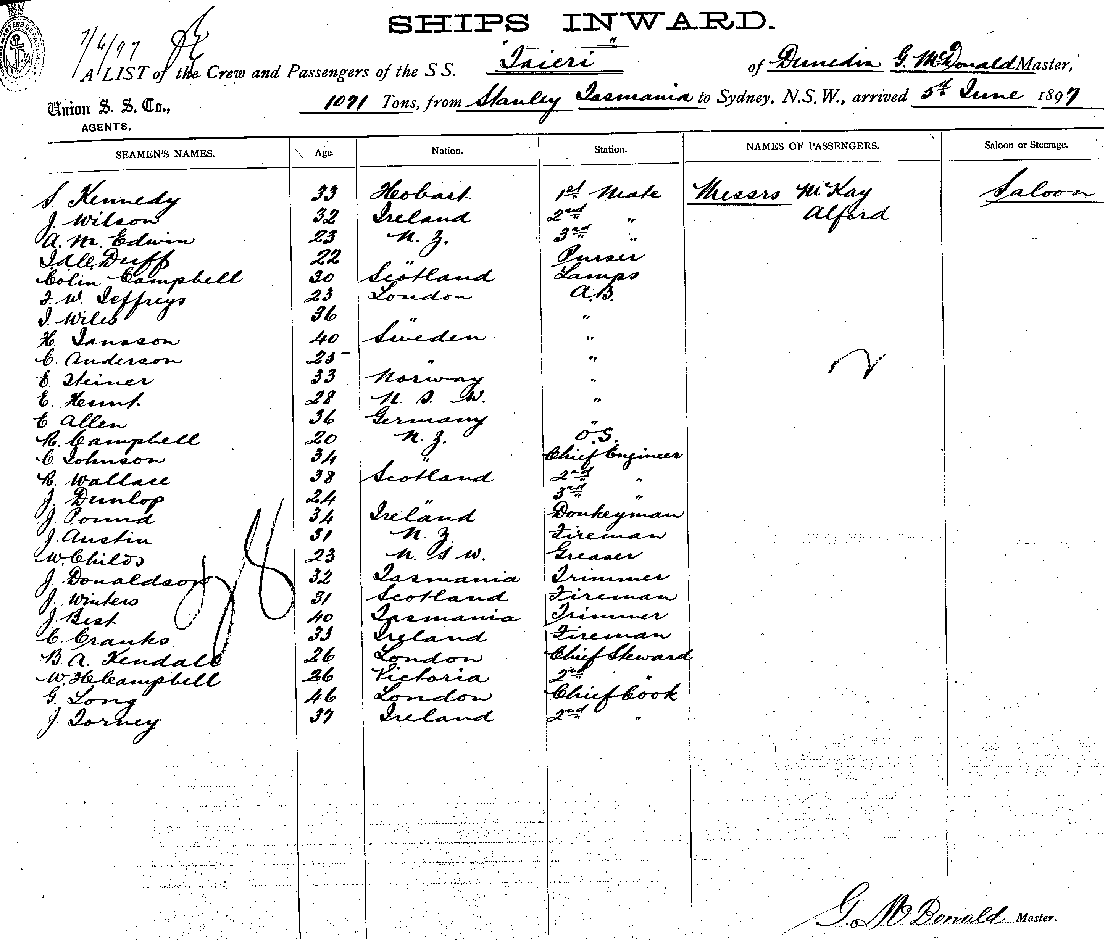 SHIPS INWARD.
7/6/97
A LIST of the Crew and Passengers of the S S. "Taieri" of Dunedin G. McDonald Master,
Union S. S. Co.,
AGENTS.
1071 Tons, from Stanley Tasmania to Sydney, N.S.W., arrived 5th June 1897
SEAMEN'S NAMES. Age. Nation. Station. NAMES OF PASSENGERS. Saloon or Steerage.
S. Kennedy 33 Hobart 1st Mate Messrs McKay Saloon
J. Wilson 32 Ireland 2nd " Alford
A. M. Edwin 23 N. Z. 3rd "
Duff 22 " Purser
Colin Campbell 30 Scotland Lamps
F. W. Jeffreys 23 London A.B.
J. Wiles 36 " "
H. Jansson 40 Sweden "
C. Anderson 25 " "
E. Steiner 33 Norway "
E. Hunt 28 N. S. W. "
E Allen 36 Germany "
R. Campbell 20 N. Z. O.S.
C Johnson 34 " Chief Engineer
R. Wallace 38 Scotland 2nd "
J. Dunlop 24 " 3rd "
J. Pound 34 Ireland Donkeyman
J. Austin 31 N. Z. Fireman
W. Childs 23 N. S W. Greaser
J. Donaldson 32 Tasmania Trimmer
J. Winters 31 Scotland Fireman
J. Best 40 Tasmania Trimmer
C Cranks 33 Ireland Fireman
B. A. Kendall 26 London Chief Steward
W. H Campbell 26 Victoria 2nd "
G. Long 46 London Chief Cook
J. Torney 37 Ireland 2nd "
28
2
G. McDonald Master.